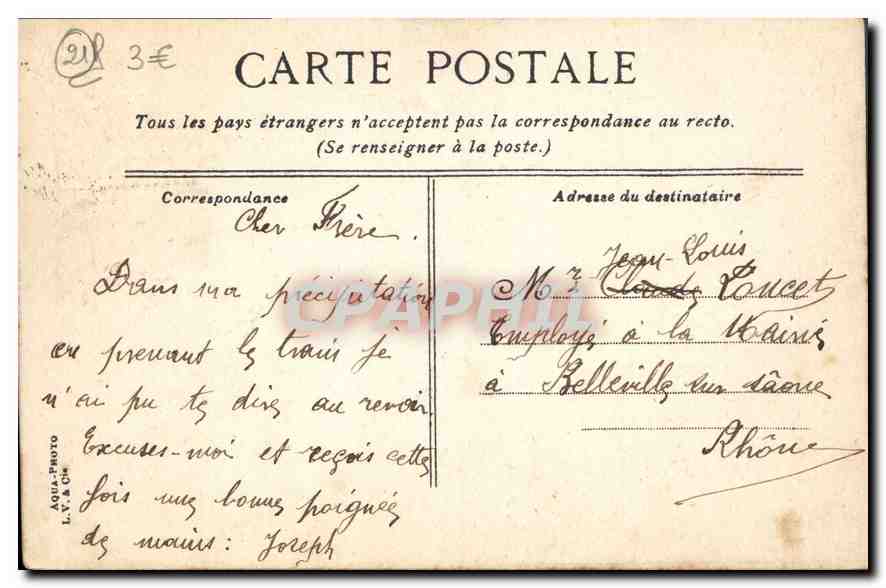 218 3€
CARTE POSTALE
Tous les pays étrangers n'acceptent pas la correspondance au recto.
(Se renseigner à la poste.)
Correspondance
Cher Frère.
Dans ma précipitation
en prenant le train je
n'ai pu te dire au revoir
Excuses-moi et reçois cette
fois une bonne poignée
de mains : Joseph
AQUA-PHOTO
L. V. & Cie
Adresse du destinataire
Jean-Louis
Mr Claude Tucet
Employé à la Mairie
à Belleville sur Saône
Rhône
CPAPHIL